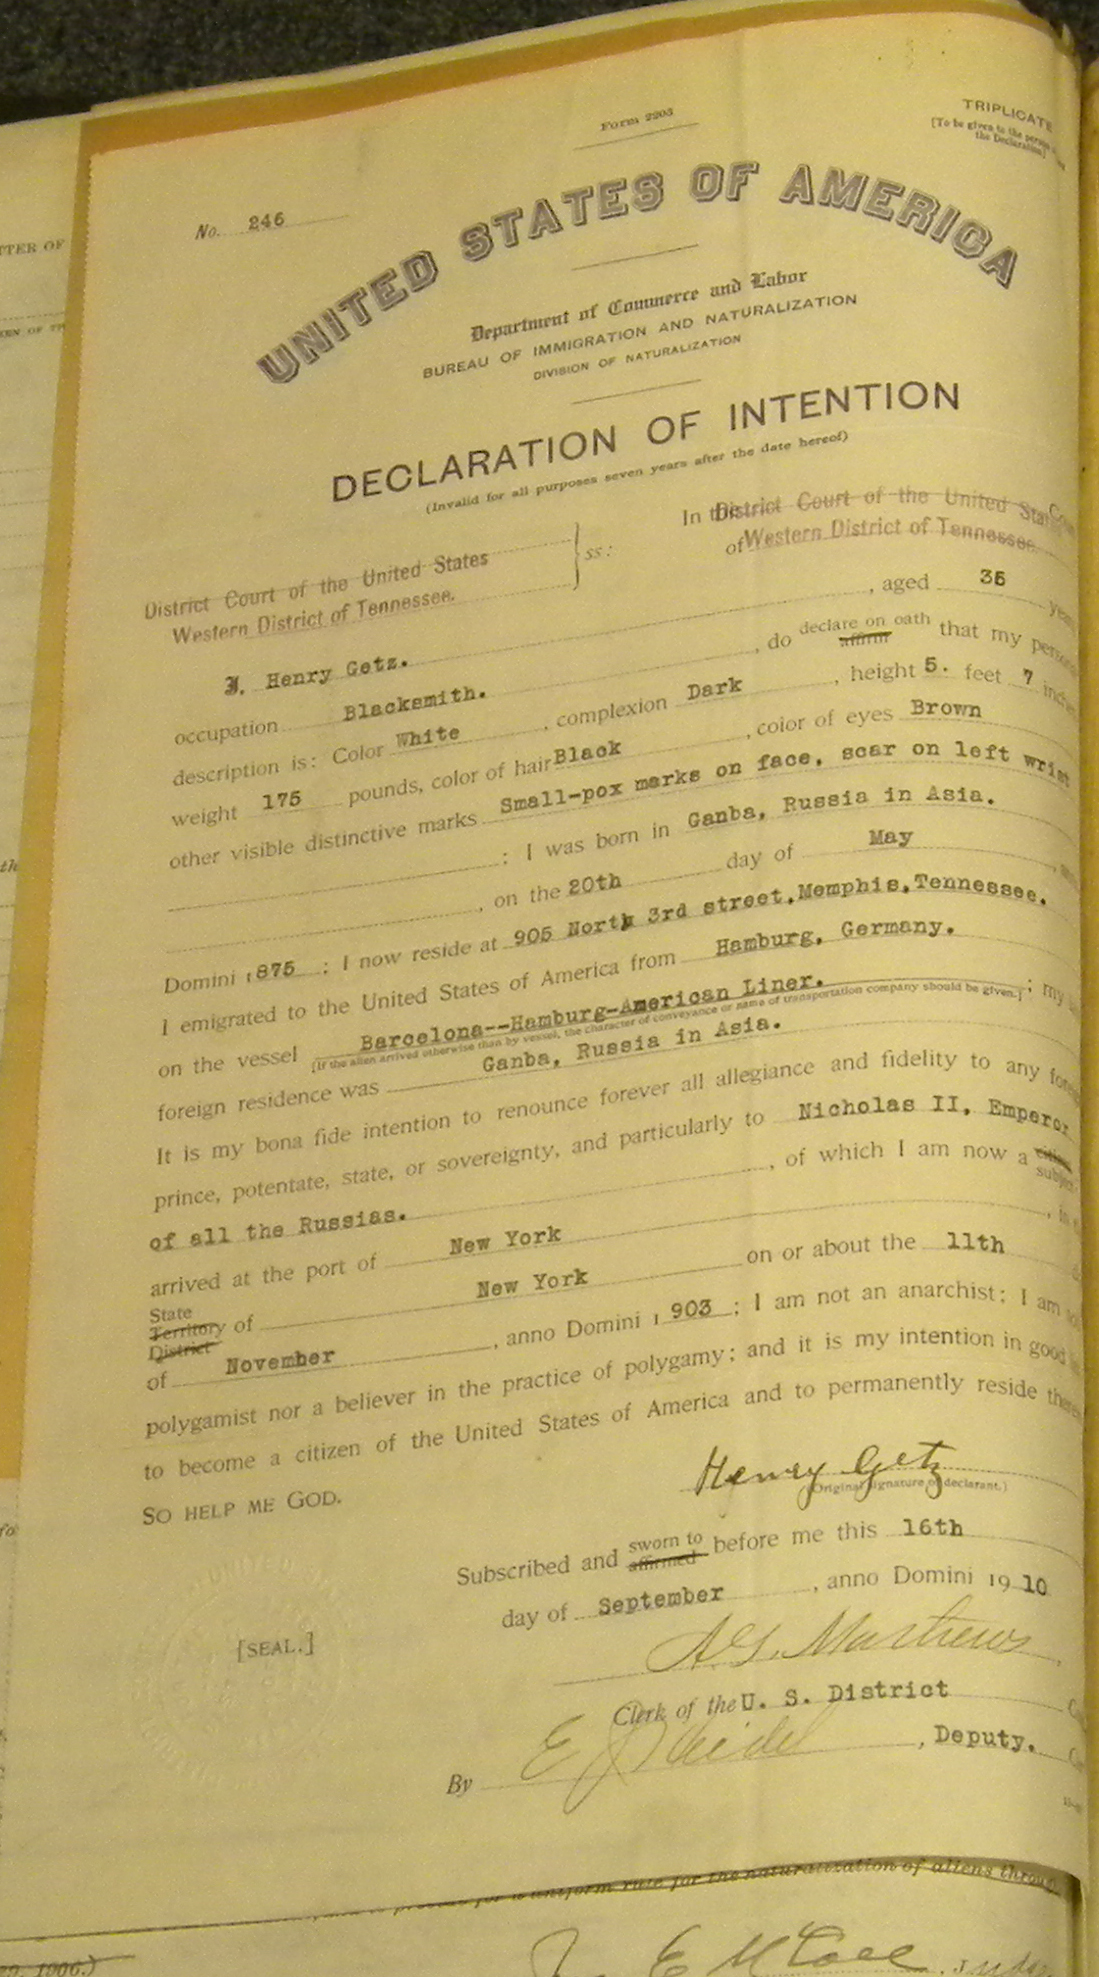 Form 2203
TRIPLICATE
[To be given to the person
the Declaration.]
No. 246
UNITED STATES OF AMERICA
Department of Commerce and Labor
BUREAU OF IMMIGRATION AND NATURALIZATION
DIVISION OF NATURALIZATION
DECLARATION OF INTENTION
(Invalid for all purposes seven years after the date hereof)
In the District Court of the United States Court
of Western District of Tennessee.
District Court of the United States
Western District of Tennessee.
ss:
I, Henry Getz. , aged 35 years
occupation Blacksmith. , do declare on oath affirm that my personal
description is: Color White , complexion Dark , height 5. feet 7 inches
weight 175 pounds, color of hair Black , color of eyes Brown
other visible distinctive marks Small-pox marks on face, scar on left wrist
; I was born in Ganba, Russia in Asia.
, on the 20th day of May ,
Domini 1875 ; I now reside at 905 North 3rd street, Memphis, Tennessee.
I emigrated to the United States of America from Hamburg, Germany.
on the vessel Barcelona--Hamburg-American Liner. ; my
[If the alien arrived otherwise than by vessel, the character of conveyance or name of transportation company should be given.]
foreign residence was Ganba, Russia in Asia.
It is my bona fide intention to renounce forever all allegiance and fidelity to any foreign
prince, potentate, state, or sovereignty, and particularly to Nicholas II, Emperor
of all the Russias. , of which I am now a citizen subject
arrived at the port of New York , in
State Territory District of New York on or about the 11th
of November , anno Domini 1903 ; I am not an anarchist; I am not
polygamist nor a believer in the practice of polygamy; and it is my intention in good
to become a citizen of the United States of America and to permanently reside therein
SO HELP ME GOD.
Henry Getz
(Original signature of declarant.)
Subscribed and sworn to affirmed before me this 16th
day of September , anno Domini 1910
[SEAL.]
Clerk of the U. S. District
By , Deputy.
for the naturalization of aliens through
29, 1906.)